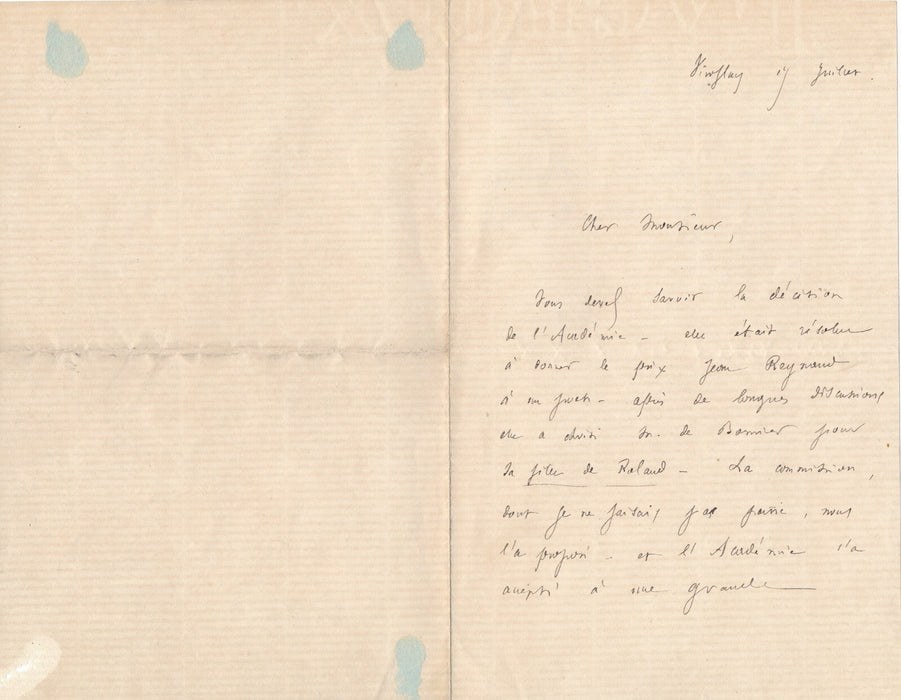 Viroflay 17 Juillet.
Cher Monsieur,
Vous devez savoir la décision
de l'Académie – elle était résolue
à donner le prix Jean Reynaud
à un poète – après de longues discussions
elle a choisi M. de Bornier pour
sa fille de Roland – La commission,
dont je ne faisais pas partie, nous
l'a proposé – et l'Académie l'a
accepté à une grande